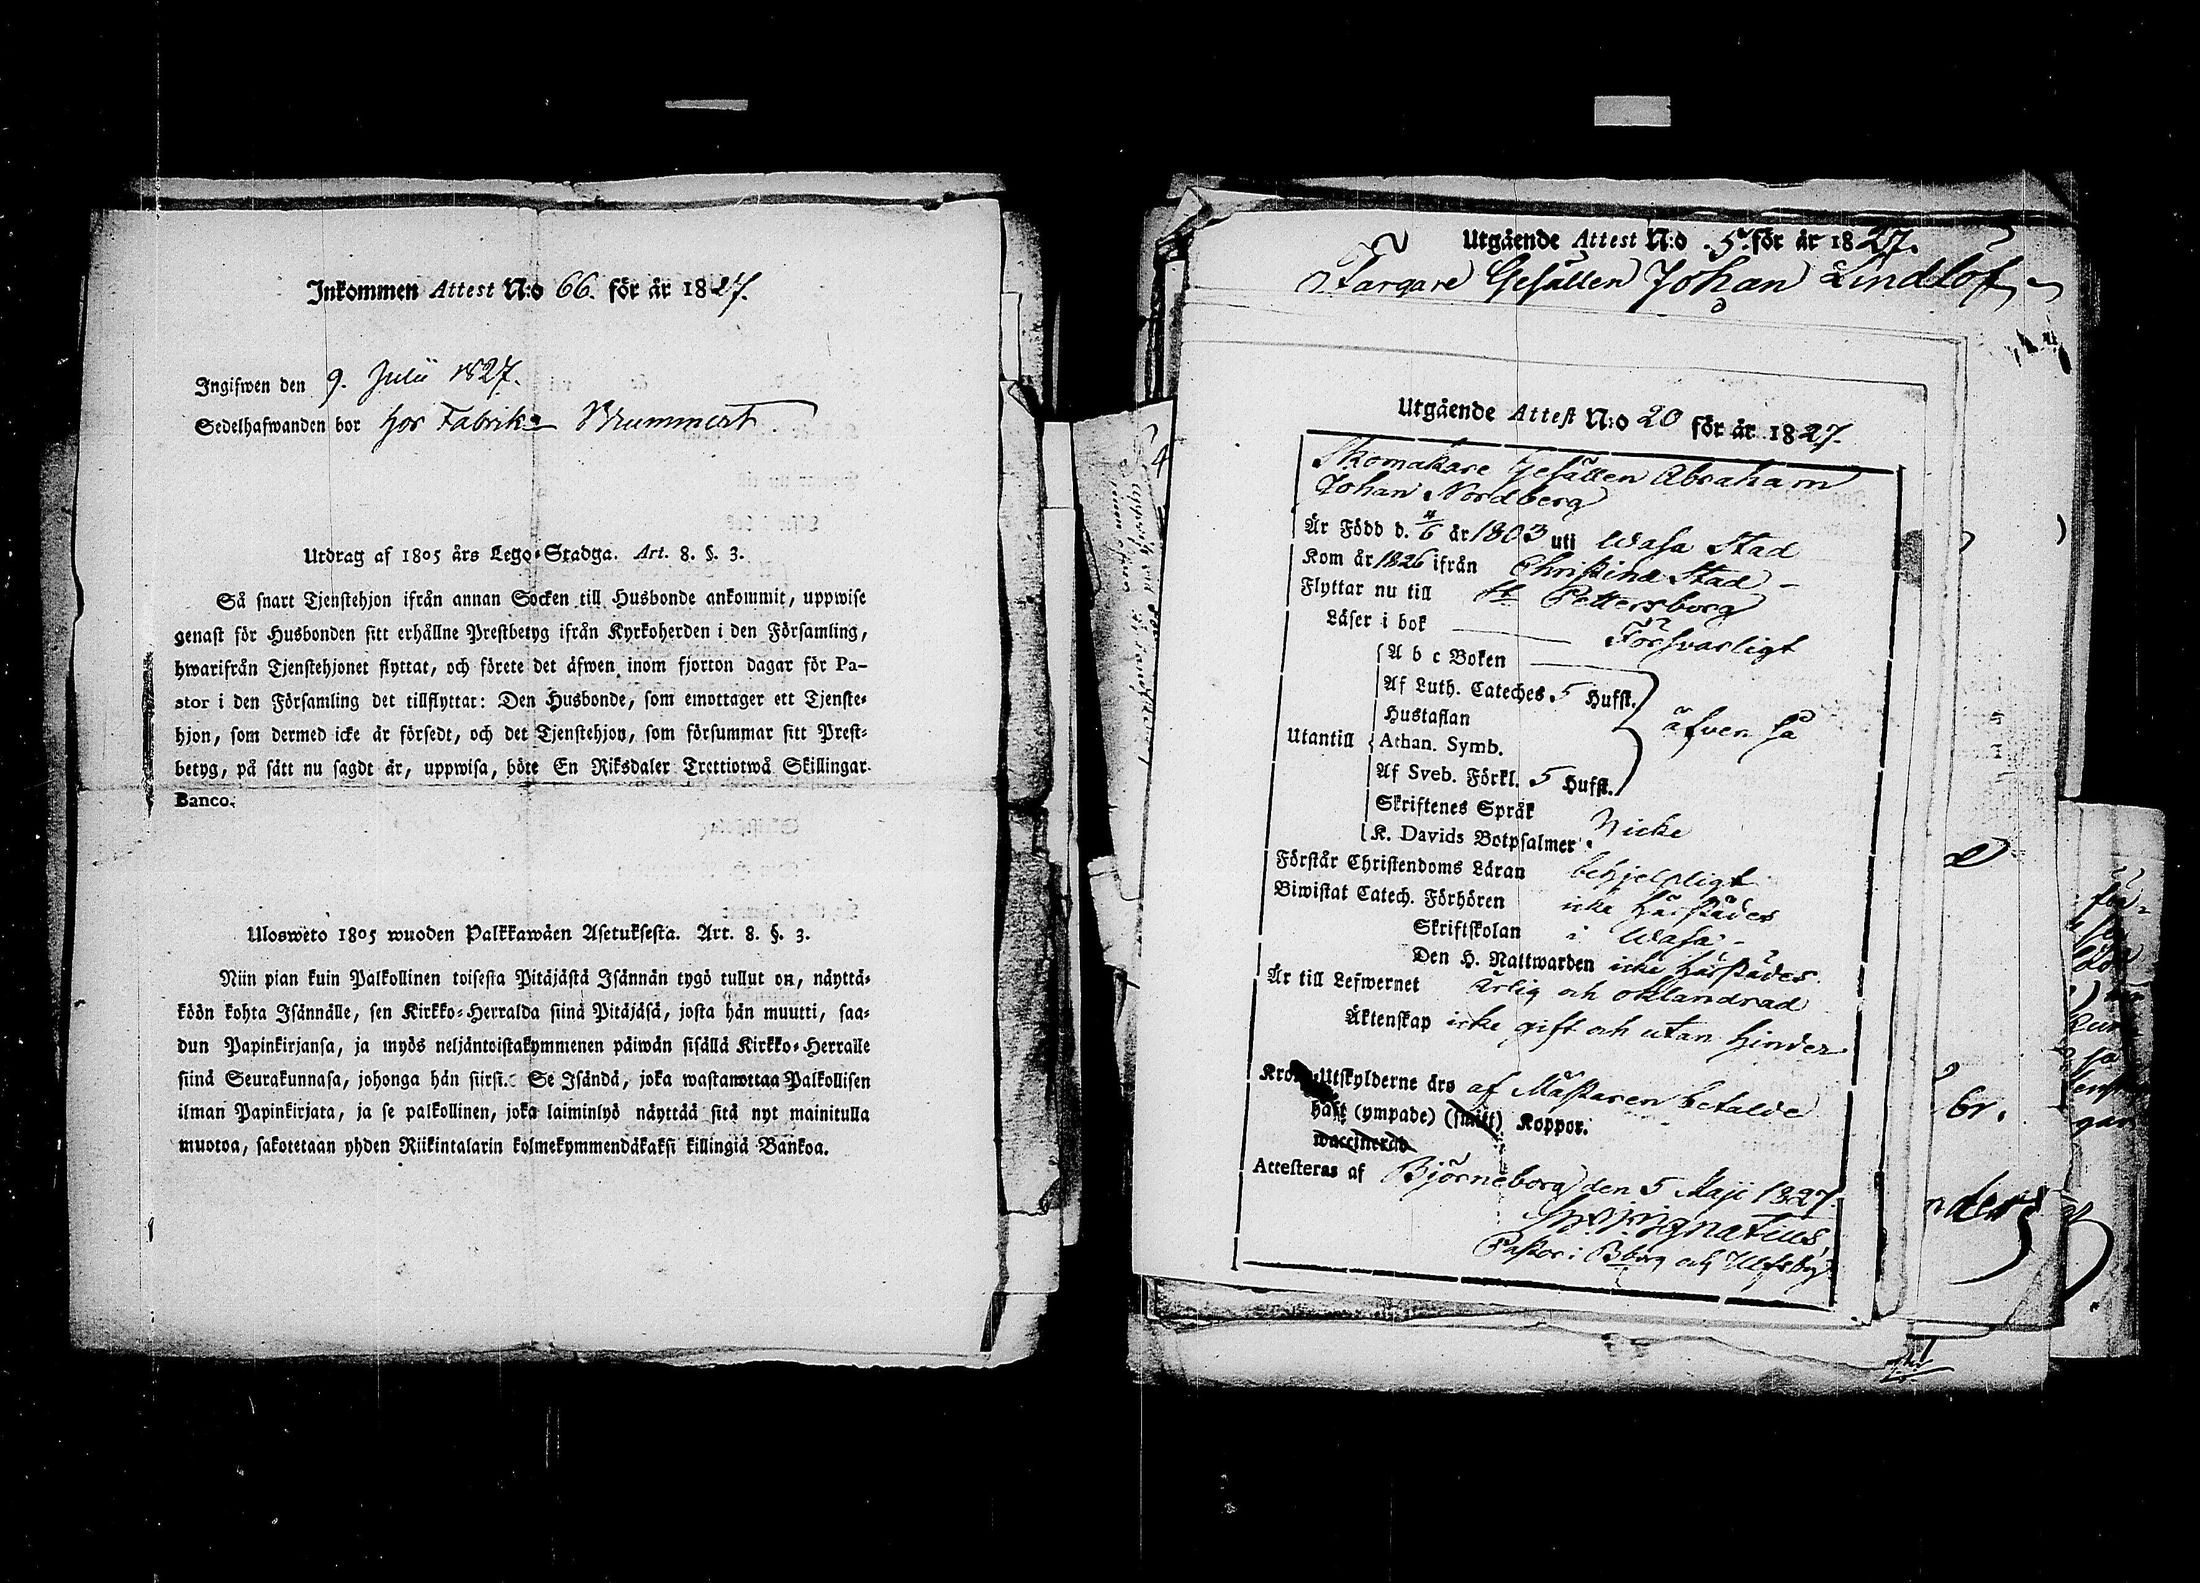 Inkommen Attest N:o 66. för år 1827.
Ingifwen den 9. Julii 1827.
Sedelhafwanden bor hos Fabrik: Brummert
Utdrag af 1805 års Lego-Stadga. Art. 8. §. 3.
Så snart Tjenstehjon ifrån annan Socken till Husbonde ankommit, uppwise
genast för Husbonden sitt erhållne Prestbetyg ifrån Kyrkoherden i den Församling,
hwarifrån Tjenstehjonet flyttat, och förete det äfwen inom fjorton dagar för Pa-
stor i den Församling det tillflyttat: Den Husbonde, som emottager ett Tjenste-
hjon, som dermed icke är försedt, och det Tjenstehjon, som försummar sitt Prest-
betyg, på sätt nu sagdt är, uppwisa, böte En Riksdaler Trettiotwå Skillingar
Banco.
Ulosweto 1805 wuoden Palkkawäen Asetuksesta. Art. 8. §. 3.
Niin pian kuin Palkollinen toisesta Pitäjästä Isännän tygö tullut on, näyttä-
köön kohta Isännälle, sen Kirkko-Herralda siinä Pitäjäsä, josta hän muutti, saa-
dun Papinkirjansa, ja myös neljäntoistakymmenen päiwän sisällä Kirkko-Herralle
siinä Seurakunnasa, johonga hän siirsi. Se Isändä, joka wastanottaa Palkollisen
ilman Papinkirjata, ja se palkollinen, joka laiminlyö näyttää sitä nyt mainitulla
muotoa, sakotetaan yhden Riikintalarin kolmekymmendäkaksi killingiä Bankoa.
Utgående Attest N:o 5. för år 1827.
Färgare Gesällen Johan Lindlöf
Utgående Attest N:o 20 för år 1827.
Skomakare Gesällen Abraham
Johan Nordberg
Är Född d. 4/6 år 1803 uti Wasa Stad
Kom år 1826 ifrån Christinæ Stad
Flyttar nu till St Pettersborg
Läser i bok Försvarligt
A b c Boken
Af Luth. Cateches 5 Hufst.
Hustaflan
Utantill Athan. Symb. äfven så
Af Sveb. Förkl. 5 Hufst.
Skriftenes Språk
K. Davids Botpsalmer Nicke
Förstår Christendoms Läran behjelpligt
Biwistat Catech. Förhören icke härstädes
Skriftskolan i Wasa
Den H. Nattwarden icke härstädes.
Är till Lefwernet ärlig och oklandrad
Äktenskap icke gift och utan hinder
Utskylderne äro af Mästaren betalde
haft (ympade) (smitt) Koppor.
waccinerad
Attesteras af Björneborg den 5 Maji 1827
Ignatius,
Pastor i Bborg och Ulfsby